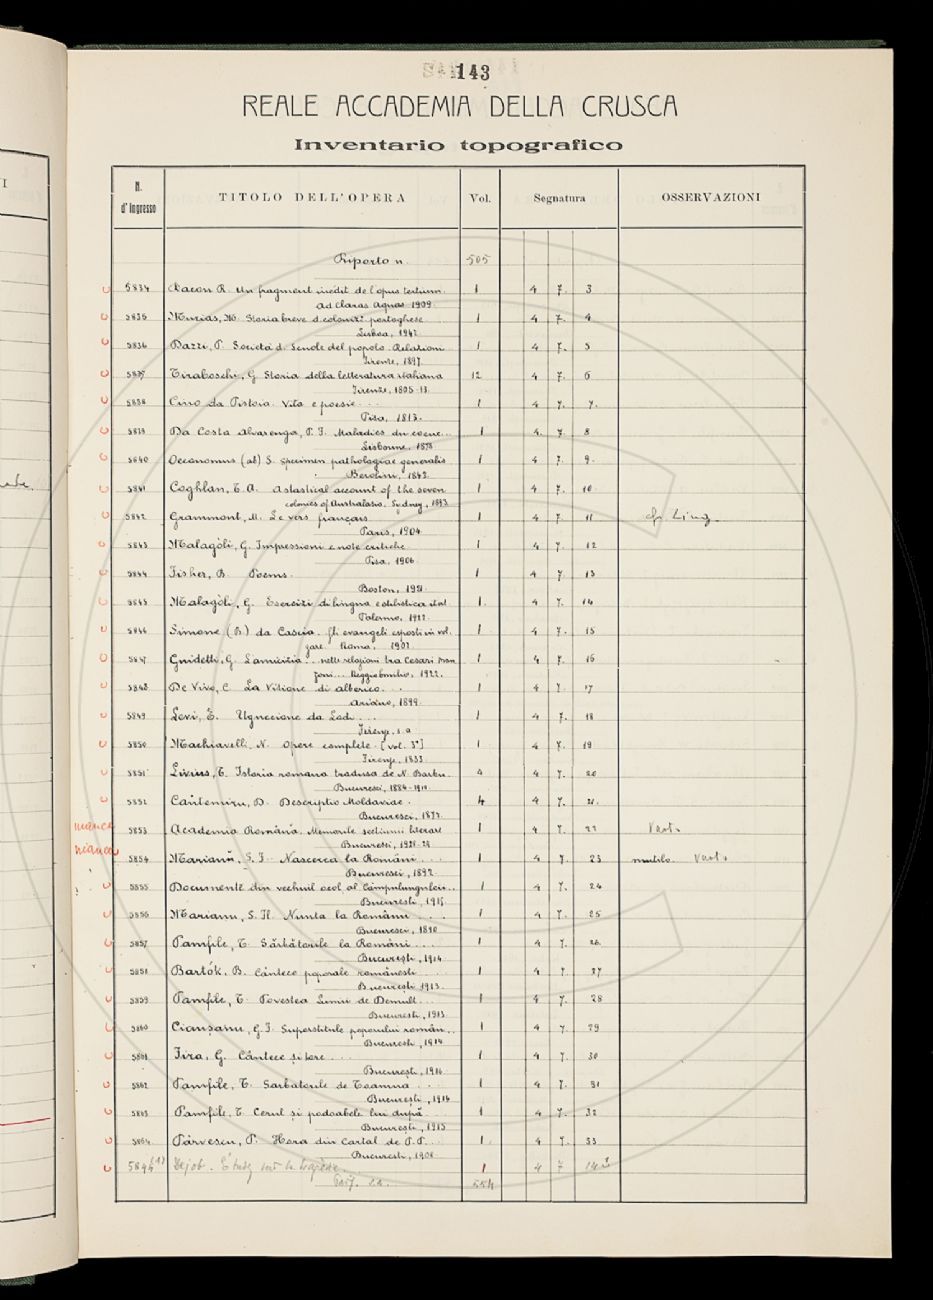 143
REALE ACCADEMIA DELLA CRUSCA
Inventario topografico
N. d'Ingresso TITOLO DELL'OPERA Vol. Segnatura OSSERVAZIONI
Riporto n. 505
5834 Bacon R. Un fragment inédit de l'opus tertium 1 4 7. 3
ad Claras Aquas 1909.
5835 Murias, M. Storia breve d. colonizz. portoghese 1 4 7. 4
Lisboa, 1942
5836 Dazzi, P. Società d. Scuole del popolo. Relazioni 1 4 7. 5
Firenze, 1897.
5837 Tiraboschi, G. Storia della letteratura italiana 12 4 7. 6
Firenze, 1805-13.
5838 Cino da Pistoia. Vita e poesie... 1 4 7. 7.
Pisa, 1813.
5839 Da Costa Alvarenga, P. F. Maladies du coeur... 1 4. 7. 8
Lisbonne, 1878
5840 Oeconomus (ab) S. Specimen pathologiae generalis 1 4 7. 9.
Berolini, 1843.
5841 Coghlan, T. A. A stastical account of the seven 1 4 7. 10
colonies of Australasia. Sydney, 1893
5842 Grammont, M. Le vers français 1 4 7. 11 cfr. Ling.
Paris, 1904
5843 Malagòli, G. Impressioni e note critiche 1 4 7. 12
Pisa, 1906.
5844 Fisher, B. Poems. 1 4 7. 13
Boston, 1921.
5845 Malagòli, G. Esercizi di lingua e stilistica ital. 1. 4 7. 14
Palermo, 1922.
5846 Simone (B.) da Cascia. Gli evangeli esposti in vol. 1 4 7. 15
gare. Roma, 1902
5847 Guidetti, G. L'amicizia... nelle relazioni tra Cesari Man 1 4 7. 16
zoni... Reggio Emilia, 1922.
5848 De Vivo, C. La Visione di Alberico... 1 4 7. 17
Ariano, 1899.
5849 Levi, E. Uguccione da Lodi... 1 4 7. 18
Firenze, s. a
5850 Machiavelli, N. Opere complete. [vol. 3°] 1 4 7. 19
Firenze, 1833.
5851 Livius, T. Istoria romana tradusa de N. Barbu. 4 4 7. 20
Bucuresci, 1884-1914.
5852 Cantemiru, D. Descriptio Moldaviae. 4 4 7. 21.
Bucuresci, 1872.
manca 5853 Academia Română. Memorile sectiunii literare 1 4 7. 22
Bucuresti, 1928-29
manca 5854 Marianŭ, S. F. Nascerea la Români... 1 4 7. 23 mutilo.
Bucuresci, 1892.
5855 Documente din vechiul ocol al Câmpulungului.. 1 4 7. 24
Bucuresti, 1915.
5856 Marianu, S. Fl. Nunta la Români... 1 4 7. 25
Bucuresci, 1890
5857 Pamfile, T. Sărbătorile la Români... 1 4 7. 26.
Bucureşti, 1914
5858 Bartók, B. Cântece poporale româneşti... 1 4 7 27
Bucuresti 1913.
5859 Pamfile, T. Povestea Lumii de Demult... 1 4 7. 28
Bucuresti, 1913.
5860 Ciauşanu, G. F. Superstitiile poporului român... 1 4 7. 29
Bucuresti, 1914
5861 Fira, G. Cântece şi hore... 1 4 7. 30
Bucureşti, 1916.
5862 Pamfile, T. Sarbatorile de Toamna... 1 4 7. 31
Bucureşti, 1914
5863 Pamfile, T. Cerul şi podoabele lui după 1 4 7. 32
Bucuresti, 1915
5864 Pârvescu, P. Hora din Cartal de P. P... 1. 4 7. 33
Bucuresti, 1908.
Dejob. Études sur la tragédie. 1 4 7
554